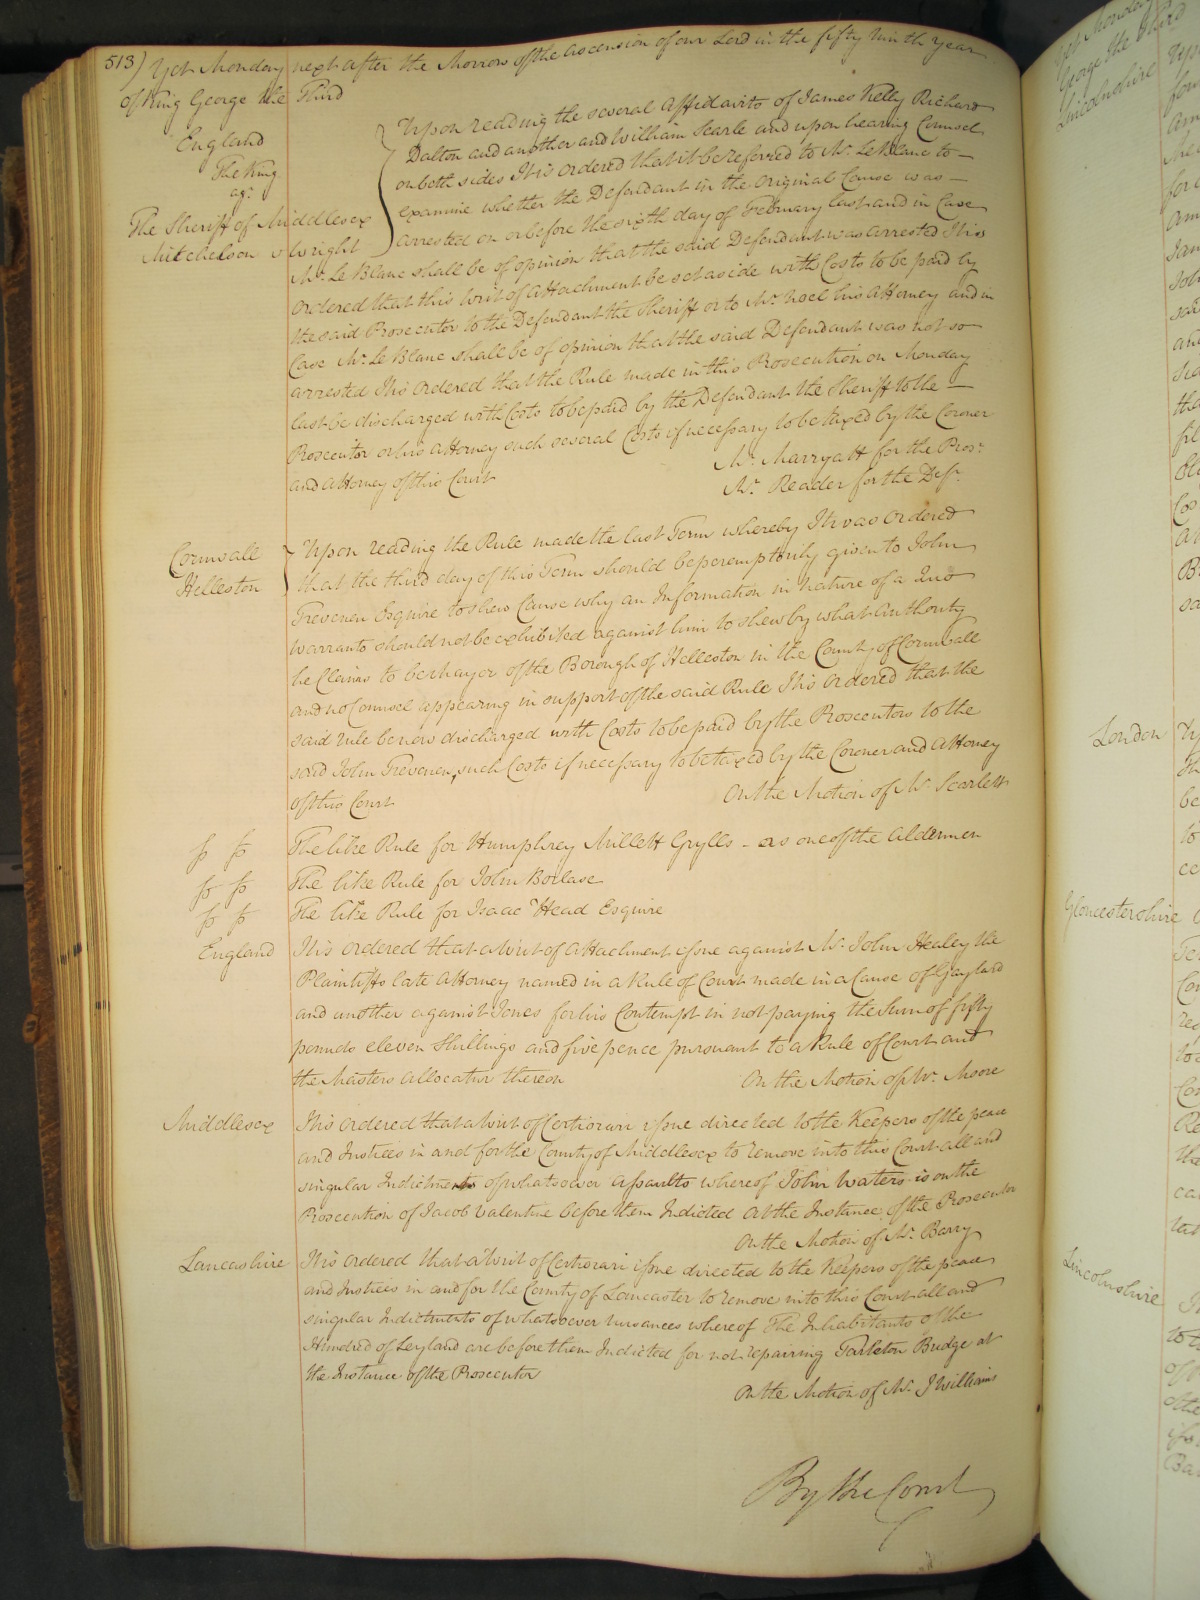 513) Yet Monday next after the Morrow of the Ascension of our Lord in the fifty Ninth Year
of King George the Third
England
The King
agt
The Sheriff of Middlesex
Mitchelson v Wright
Upon reading the several Affidavits of James Kelly Richard
Dalton and another and William Searle and upon hearing Counsel
on both sides It is Ordered that it be referred to Mr. Le Blanc to —
examine whether the Defendant in the Original Cause was —
arrested on or before the sixth day of February last and in Case
Mr. Le Blanc shall be of opinion that the said Defendant was arrested It is
Ordered that this Writ of Attachment be set aside with Costs to be paid by
the said Prosecutor to the Defendant the Sheriff or to Mr. Noel his Attorney and in
Case Mr. Le Blanc shall be of opinion that the said Defendant was not so
arrested It is Ordered that the Rule made in this Prosecution on Monday
last be discharged with Costs to be paid by the Defendant the Sheriff to the —
Prosecutor or his Attorney such several Costs if necessary to be taxed by the Coroner
and Attorney of this Court
Mr. Marryatt for the Prosr.
Mr. Reader for the Deft.
Cornwall
Helleston
Upon reading the Rule made the last Term whereby It was Ordered
that the third day of this Term should be peremptorily given to John
Trevenen Esquire to shew Cause why an Information in nature of a Quo
Warranto should not be exhibited against him to shew by what Authority
he Claims to be Mayor of the Borough of Helleston in the County of Cornwall
and no Counsel appearing in support of the said Rule It is Ordered that the
said rule be now discharged with Costs to be paid by the Prosecutors to the
said John Trevenen, such Costs if necessary to be taxed by the Coroner and Attorney
of this Court
On the Motion of Mr. Scarlett
The like Rule for Humphrey Millett Grylls - as one of the Aldermen
The like Rule for John Borlase
The like Rule for Isaac Head Esquire
England
It is Ordered that a Writ of Attachment issue against Mr. John Healey the
Plaintiffs late Attorney named in a Rule of Court made in a Cause of Gaylard
and another against Jones for his Contempt in not paying the Sum of fifty
pounds eleven Shillings and five pence pursuant to a Rule of Court and
the Masters Allocatur thereon
On the Motion of Mr. Moore
Middlesex
It is Ordered that a Writ of Certiorari issue directed to the Keepers of the peace
and Justices in and for the County of Middlesex to remove into this Court all and
singular Indictments of whatsoever Assaults whereof John Waters is on the
Prosecution of Jacob Valentine before them Indicted At the Instance of the Prosecutor
On the Motion of Mr. Barry
Lancashire
It is Ordered that a Writ of Certiorari issue directed to the Keepers of the peace
and Justices in and for the County of Lancaster to remove into this Court all and
singular Indictments of whatsoever nuisances whereof The Inhabitants of the
Hundred of Leyland are before them Indicted for not repairing Tarleton Bridge at
the Instance of the Prosecutor
On the Motion of Mr. J Williams
By the Court
George the Third
Lincolnshire
London
Gloucestershire
Lincolnshire